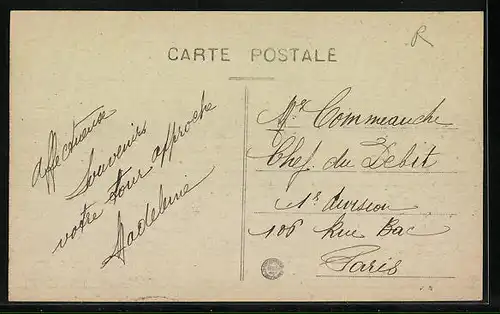 R
CARTE POSTALE
Affectueux
Souvenirs
votre tour approche
Madeleine
Mr Commeauche
Chef du Debit
1e division
106 Rue Bac
Paris